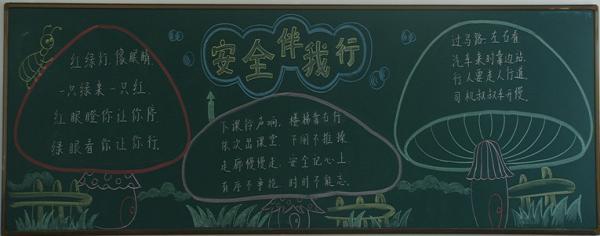 安全伴我行
红绿灯,像眼睛,
一只绿来一只红。
红眼瞪你让你停,
绿眼看你让你行。
下课铃声响,楼梯靠右行
依次出课堂 下闹不推操
走廊慢慢走 安全记心上
有序不争抢 时时不能忘。
过马路,左右看
汽车来时靠边站
行人要走人行道
司机叔叔车开慢。